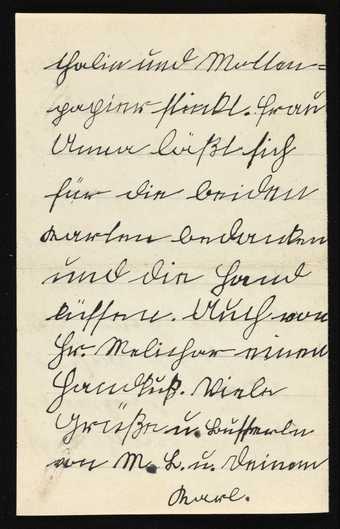 thalin und Motten-
papier stinkt. Frau
Anna läßt sich
für die beiden
Karten bedanken
und die Hand
küssen. Auch von
Hr. Melichar einen
Handkuß. Viele
Grüße u. Busserln
von M. L. u. Deinem
Karl.